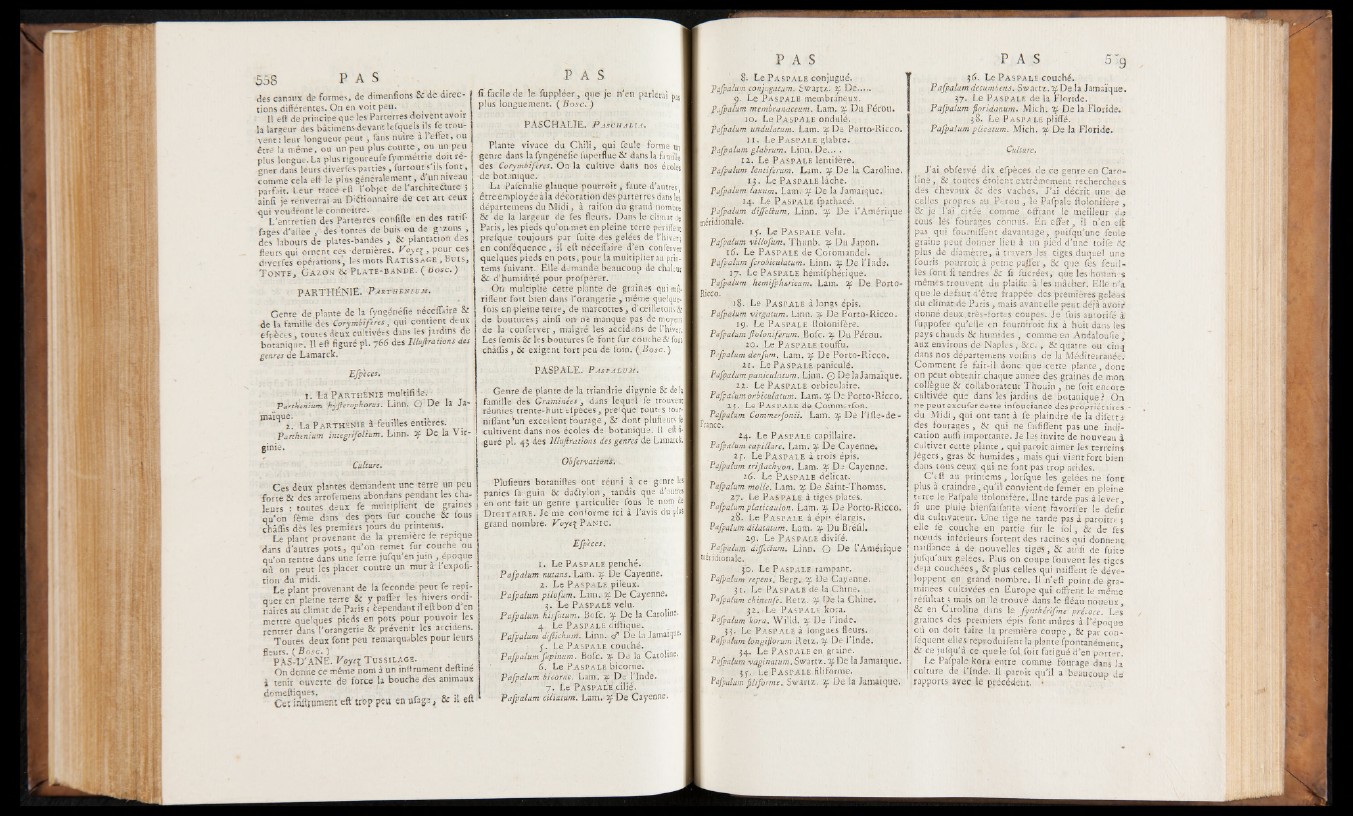 558 P A S
des canaux de formes, de dimensions & de direc-
tions différentes. On en voit peu.
Il est de principe que les Parterres doivent avoir
la largeur des bâtimens devant lesquels ils se trou-
vent : leur longueur peut, sans nuire à l'effet, ou
être la même, ou un peu plus courte, ou un peu
plus longue. La plus rigoureuse symmétrie doit ré-
gner dans leurs diverses parties, surtout s'ils sont,
comme cela est le plus généralement, d'un niveau
parfait. Leur tracé est l'objet de l'architecture ;
ainsi je renverrai au Dictionnaire de cet art ceux
qui voudront le connoître.
L'entretien des Parterres consiste en des ratis-
sages d'allée, des tontes de buis ou de gazons,
des labours de plates-bandes, & plantation des
fleurs qui ornent ces dernières. Voyez, pour ces
diverses opérations, les mots RATISSAGE, BUIS,
TONTE, GAZON & PLATE-BANDE. ( Bosc. )
PARTHÉNIE. PARTHENIUM.
Genre de plante de la syngénésie nécessaire &
de la famille des Corymbifères, qui contient deux
espèces, toutes deux cultivées dans les jardins de
botanique. Il est figuré pl. 766 des Illustrations des
genres de Lamarck.
Espèces.
1. La PARTHÉNIE multifide.
Parthenium hysterophorus. Linn. ☉ De la Ja-
maïque.
2. La PARTHÉNIE à feuilles entières.
Parthenium integrifolium. Linn. ♃ De la Vir-
ginie.
Culture.
Ces deux plantes demandent une terre un peu
forte & des arrosemens abondans pendant les cha-
leurs : toutes deux se multiplient de graines
qu'on sème dans des pots sur couche & sous
châssis dès les premiers jours du printems.
Le plant provenant de la première se repique
dans d'autres pots, qu'on remet sur couche ou
qu'on rentre dans une serre jusqu'en juin, époque
où on peut les placer contre un mur à l'exposi-
tion du midi.
Le plant provenant de la seconde peut se repi-
quer en pleine terre & y passer les hivers ordi-
naires au climat de Paris ; cependant il est bon d'en
mettre quelques pieds en pots pour pouvoir les
rentrer dans l'orangerie & prévenir les accidens.
Toutes deux sont peu remarquables pour leurs
fleurs. ( Bosc. )
PAS-D'ANE. Voyez TUSSILAGE.
On donne ce même nom à un instrument destiné
à tenir ouverte de force la bouche des animaux
domestiques.
Cet instrument est trop peu en usage, & il est
P A S
si facile de le suppléer, que je n'en parlerai pas
plus longuement. ( Bosc. )
PASCHALIE. PASCHALIA.
Plante vivace du Chili, qui seule forme un
genre dans la syngénésie superflue & dans la famille
des Corymbifères. On la cultive dans nos écoles
de botanique.
La Paschalie glauque pourroit, faute d'autres,
être employée à la décoration des parterres dans les
départemens du Midi, à raison du grand nombre
& de la largeur de ses fleurs. Dans le climat de
Paris, les pieds qu'on met en pleine terre périssent
presque toujours par suite des gelées de l'hiver ;
en conséquence, il est nécessaire d'en conserver
quelques pieds en pots, pour la multiplier au prin-
tems suivant. Elle demande beaucoup de chaleur
& d'humidité pour prospérer.
On multiplie cette plante de graines qui mû-
rissent fort bien dans l'orangerie, même quelque-
fois en pleine terre, de marcottes, d'œilletons &
de boutures ; ainsi on ne manque pas de moyens
de la conserver, malgré les accidens de l'hiver.
Les semis & les boutures se font sur couche & sous
châssis, & exigent fort peu de soin. ( Bosc. )
PASPALE. PASPALUM.
Genre de plante de la triandrie digynie & de la
famille des Graminées, dans lequel se trouvent
réunies trente-huit espèces, presque toutes four-
nissant un excellent fourage, & dont plusieurs se
cultivent dans nos écoles de botanique. Il est fi-
guré pl. 43 des Illustrations des genres de Lamarck.
Observations.
Plusieurs botanistes ont réuni à ce genre les
panics sanguin & dactylon, tandis que d'autres
en ont fait un genre particulier sous le nom de
DIGITAIRE. Je me conforme ici à l'avis du plus
grand nombre. Voyez PANIC.
Espèces.
1. Le PASPALE penché.
Paspalum nutans. Lam. ♃ De Cayenne.
2. Le PASPALE pileux.
Paspalum pilosum. Lam. ♃ De Cayenne.
3. Le PASPALE velu.
Paspalum hirsutum. Bosc. ♃ De la Caroline.
4. Le PASPALE distique.
Paspalum distichum. Linn. ♂ De la Jamaïque.
5. Le PASPALE couché.
Paspalum supinum. Bosc. ♃ De la Caroline.
6. Le PASPALE bicorne.
Paspalum bicorne. Lam. ♃ De l'Inde.
7. Le PASPALE cilié.
Paspalum ciliatum. Lam. ♃ De Cayenne.
P A S
8. Le PASPALE conjugué.
Paspalum conjugatum. Swartz. ♃ De.....
9. Le PASPALE membraneux.
Paspalum membranaceum. Lam. ♃ Du Pérou.
10. Le PASPALE ondulé.
Paspalum undulatum. Lam. ♃ De Porto-Ricco.
11. Le PASPALE glabre.
Paspalum glabrum. Linn. De.....
12. Le PASPALE lentifère.
Paspalum lentiferum. Lam. ♃ De la Caroline.
13. Le PASPALE lâche.
Paspalum laxum. Lam. ♃ De la Jamaïque.
14. Le PASPALE spathacé.
Paspalum dissectum. Linn. ♃ De l'Amérique
méridionale.
15. Le PASPALE velu.
Paspalum villosum. Thunb. ♃ Du Japon.
16. Le PASPALE de Coromandel.
Paspalum scrobiculatum. Linn. ♃ De l'Inde.
17. Le PASPALE hémisphérique.
Paspalum hemisphæricum. Lam. ♃ De Porto-
Ricco.
18. Le PASPALE à longs épis.
Paspalum virgatum. Linn. ♃ De Porto-Ricco.
19. Le PASPALE stolonifère.
Paspalum stoloniferum. Bosc. ♃ Du Pérou.
20. Le PASPALE touffu.
Paspalum densum. Lam. ♃ De Porto-Ricco.
21. Le PASPALE paniculé.
Paspalum paniculatum. Linn. ☉ De la Jamaïque.
22. Le PASPALE orbiculaire.
Paspalum orbiculatum. Lam. ♃ De Porto-Ricco.
23. Le PASPALE de Commerson.
Paspalum Commersonii. Lam. ♃ De l'Isle-de-
France.
24. Le PASPALE capillaire.
Paspalum capillare. Lam. ♃ De Cayenne.
25. Le PASPALE à trois épis.
Paspalum tristachyon. Lam. ♃ De Cayenne.
26. Le PASPALE délicat.
Paspalum molle. Lam. ♃ De Saint-Thomas.
27. Le PASPALE à tiges plates.
Paspalum platicaulon. Lam. ♃ De Porto-Ricco.
28. Le PASPALE à épis élargis.
Paspalum dilatatum. Lam. ♃ Du Brésil.
29. Le PASPALE divisé.
Paspalum dissectum. Linn. ☉ De l'Amérique
méridionale.
30. Le PASPALE rampant.
Paspalum repens. Berg. ♃ De Cayenne.
31. Le PASPALE de la Chine.
Paspalum chinense. Retz. ♃ De la Chine.
32. Le PASPALE kora.
Paspalum kora. Willd. ♃ De l'Inde.
33. Le PASPALE à longues fleurs.
Paspalum longiflorum. Retz. ♃ De l'Inde.
34. Le PASPALE en graine.
Paspalum vaginatum. Swartz. ♃ De la Jamaïque.
35. Le PASPALE filiforme.
Paspalum filiforme. Swartz. ♃ De la Jamaïque.
P A S 559
36. Le PASPALE couché.
Paspalum decumbens. Swartz. ♃ De la Jamaïque.
37. Le PASPALE de la Floride.
Paspalum floridanum. Mich. ♃ De la Floride.
38. Le PASPALE plissé.
Paspalum plicatum. Mich. ♃ De la Floride.
Culture.
J'ai observé dix espèces de ce genre en Caro-
line, & toutes étoient extrêmement recherchées
des chevaux & des vaches. J'ai décrit une de
celles propres au Pérou, le Paspale stolonifère,
& je l'ai citée comme offrant le meilleur de
tous les fourages connus. En effet, il n'en est
pas qui fournissent davantage, puisqu'une seule
graine peut donner lieu à un pied d'une toise &
plus de diamètre, à travers les tiges duquel une
souris pourroit à peine passer, & que ses feuil-
les sont si tendres & si sucrées, que les hommes
mêmes trouvent du plaisir à les mâcher. Elle n'a
que le défaut d'être frappée des premières gelées
du climat de Paris, mais avant elle peut déjà avoir
donné deux très-fortes coupes. Je suis autorisé à
supposer qu'elle en fourniroit six à huit dans les
pays chauds & humides, comme en Andalousie,
aux environs de Naples, &c., & quatre ou cinq
dans nos départemens voisins de la Méditerranée.
Comment se fait-il donc que cette plante, dont
on peut obtenir chaque année des graines de mon
collègue & collaborateur Thouin, ne soit encore
cultivée que dans les jardins de botanique ? On
ne peut excuser cette insouciance des propriétaires
du Midi, qui ont tant à se plaindre de la disette
des fourages, & qui ne saisissent pas une indi-
cation aussi importante. Je les invite de nouveau à
cultiver cette plante, qui paroît aimer les terreins
légers, gras & humides, mais qui vient fort bien
dans tous ceux qui ne sont pas trop arides.
C'est au printems, lorsque les gelées ne sont
plus à craindre, qu'il convient de semer en pleine
terre le Paspale stolonifère. Il ne tarde pas à lever,
si une pluie bienfaisante vient favoriser le desir
du cultivateur. Une tige ne tarde pas à paroître ;
elle se couche en partie sur le sol, & de ses
nœuds inférieurs sortent des racines qui donnent
naissance à de nouvelles tiges, & ainsi de suite
jusqu'aux gelées. Plus on coupe souvent les tiges
déjà couchées, & plus celles qui naissent se déve-
loppent en grand nombre. Il n'est point de gra-
minées cultivées en Europe qui offrent le même
résultat ; mais on le trouve dans le fléau noueux,
& en Caroline dans le synthérisme précoce. Les
graines des premiers épis sont mûres à l'époque
où on doit faire la première coupe, & par con-
séquent elles reproduisent la plante spontanément,
& ce jusqu'à ce que le sol soit fatigué d'en porter.
Le Paspale kora entre comme fourage dans la
culture de l'Inde. Il paroît qu'il a beaucoup de
rapports avec le précédent.